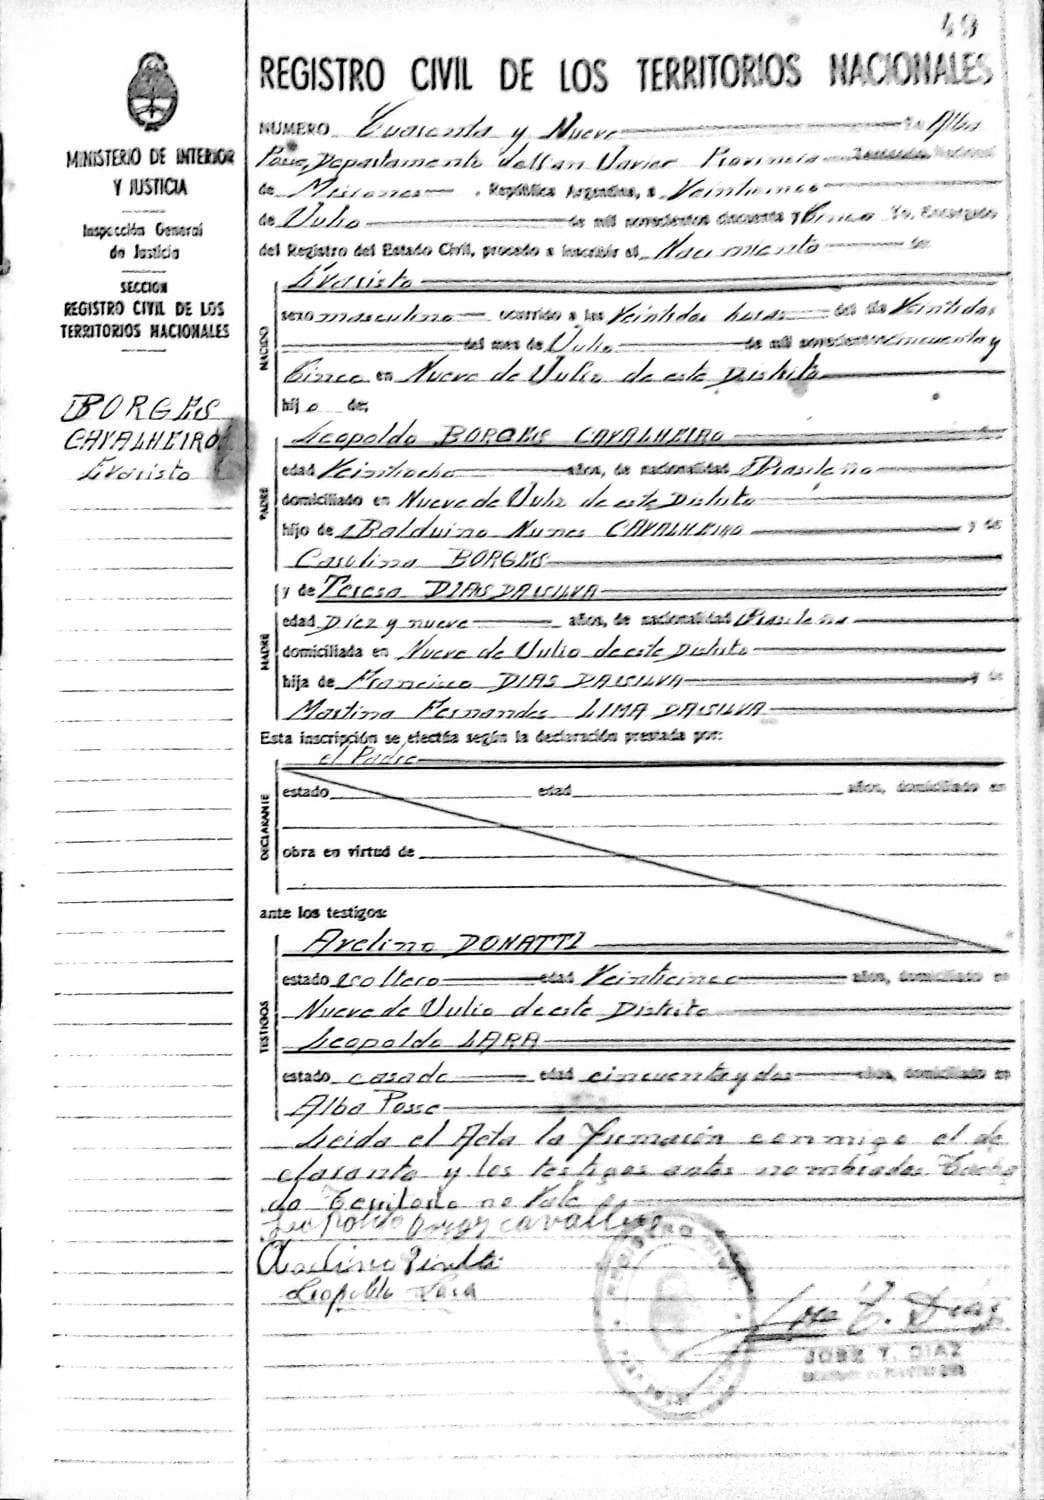 49
REGISTRO CIVIL DE LOS TERRITORIOS NACIONALES
MINISTERIO DE INTERIOR
Y JUSTICIA
Inspección General
de Justicia
SECCION
REGISTRO CIVIL DE LOS
TERRITORIOS NACIONALES
BORGES
CAVALHEIRO
Evaristo
NUMERO Cuarenta y Nueve En Alba
Posse, Departamento de San Javier Provincia
de Misiones, República Argentina, a Veinticinco
de Julio de mil novecientos cincuenta y Cinco Yo, Encargado
del Registro del Estado Civil, procedo a inscribir el Nacimiento de
NACIDO
Evaristo
sexo masculino ocurrido a las Veintidos horas del día Veintidos
del mes de Julio de mil novecientos cincuenta y
Cinco en Nueve de Julio de este Distrito
hijo de:
PADRE
Leopoldo BORGES CAVALHEIRO
edad Veintiocho años, de nacionalidad Brasileña
domiciliado en Nueve de Julio de este Distrito
hijo de Balduino Nunes CAVALHEIRO y de
Carolina BORGES
MADRE
y de Teresa DIAS DA SILVA
edad Diez y nueve años, de nacionalidad Brasileña
domiciliada en Nueve de Julio de este Distrito
hija de Francisco DIAS DA SILVA y de
Martina Fernandes LIMA DA SILVA
Esta inscripción se efectúa según la declaración prestada por:
el Padre
DECLARANTE
estado edad años, domiciliado en
obra en virtud de
ante los testigos:
TESTIGOS
Avelino DONATTI
estado soltero edad Veinticinco años, domiciliado en
Nueve de Julio de este Distrito
Leopoldo LARA
estado casado edad cincuenta y dos años, domiciliado en
Alba Posse
Leida el Acta la firmarón conmigo el de
clarante y los testigos antes nombrados Tacha
do no Vale
Leopoldo
Leopoldo Lara
REGISTRO CIVIL
José Y. Díaz
JOSE Y. DIAZ